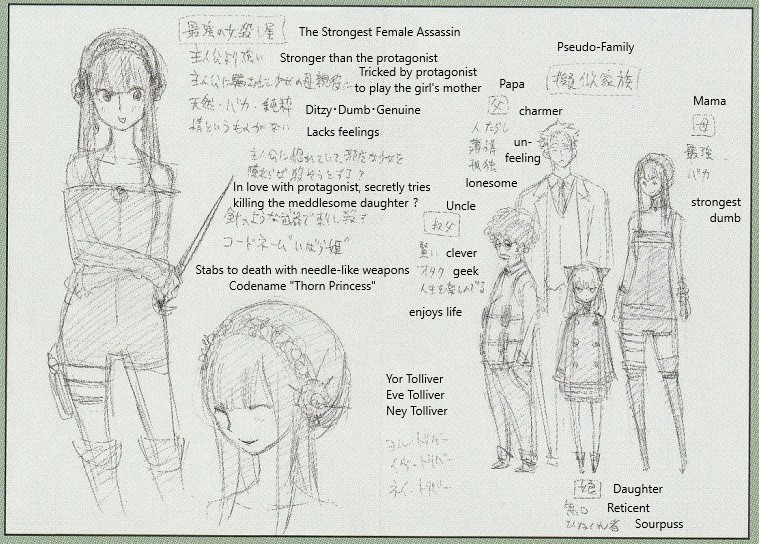 最強の女殺し屋
The Strongest Female Assassin
主人公より強い
Stronger than the protagonist
主人公に騙されて少女の母親役に
Tricked by protagonist
to play the girl's mother
天然・バカ・純粋
Ditzy･Dumb･Genuine
情というものがない
Lacks feelings
主人公に惚れていて、邪魔な少女を
In love with protagonist, secretly tries
killing the meddlesome daughter ?
針のような武器で刺し殺す
コードネーム"いばら姫"
Stabs to death with needle-like weapons
Codename "Thorn Princess"
Pseudo-Family
擬似家族
Papa
父
charmer
人たらし
薄情
un-
feeling
孤独
lonesome
Mama
母
最強
バカ
strongest
dumb
Uncle
叔父
賢い
clever
オタク
geek
人生を楽しんでる
enjoys life
Yor Tolliver
Eve Tolliver
Ney Tolliver
ヨル・トリバー
イヴ・トリバー
ネイ・トリバー
娘
Daughter
無口
Reticent
ひねくれ者
Sourpuss